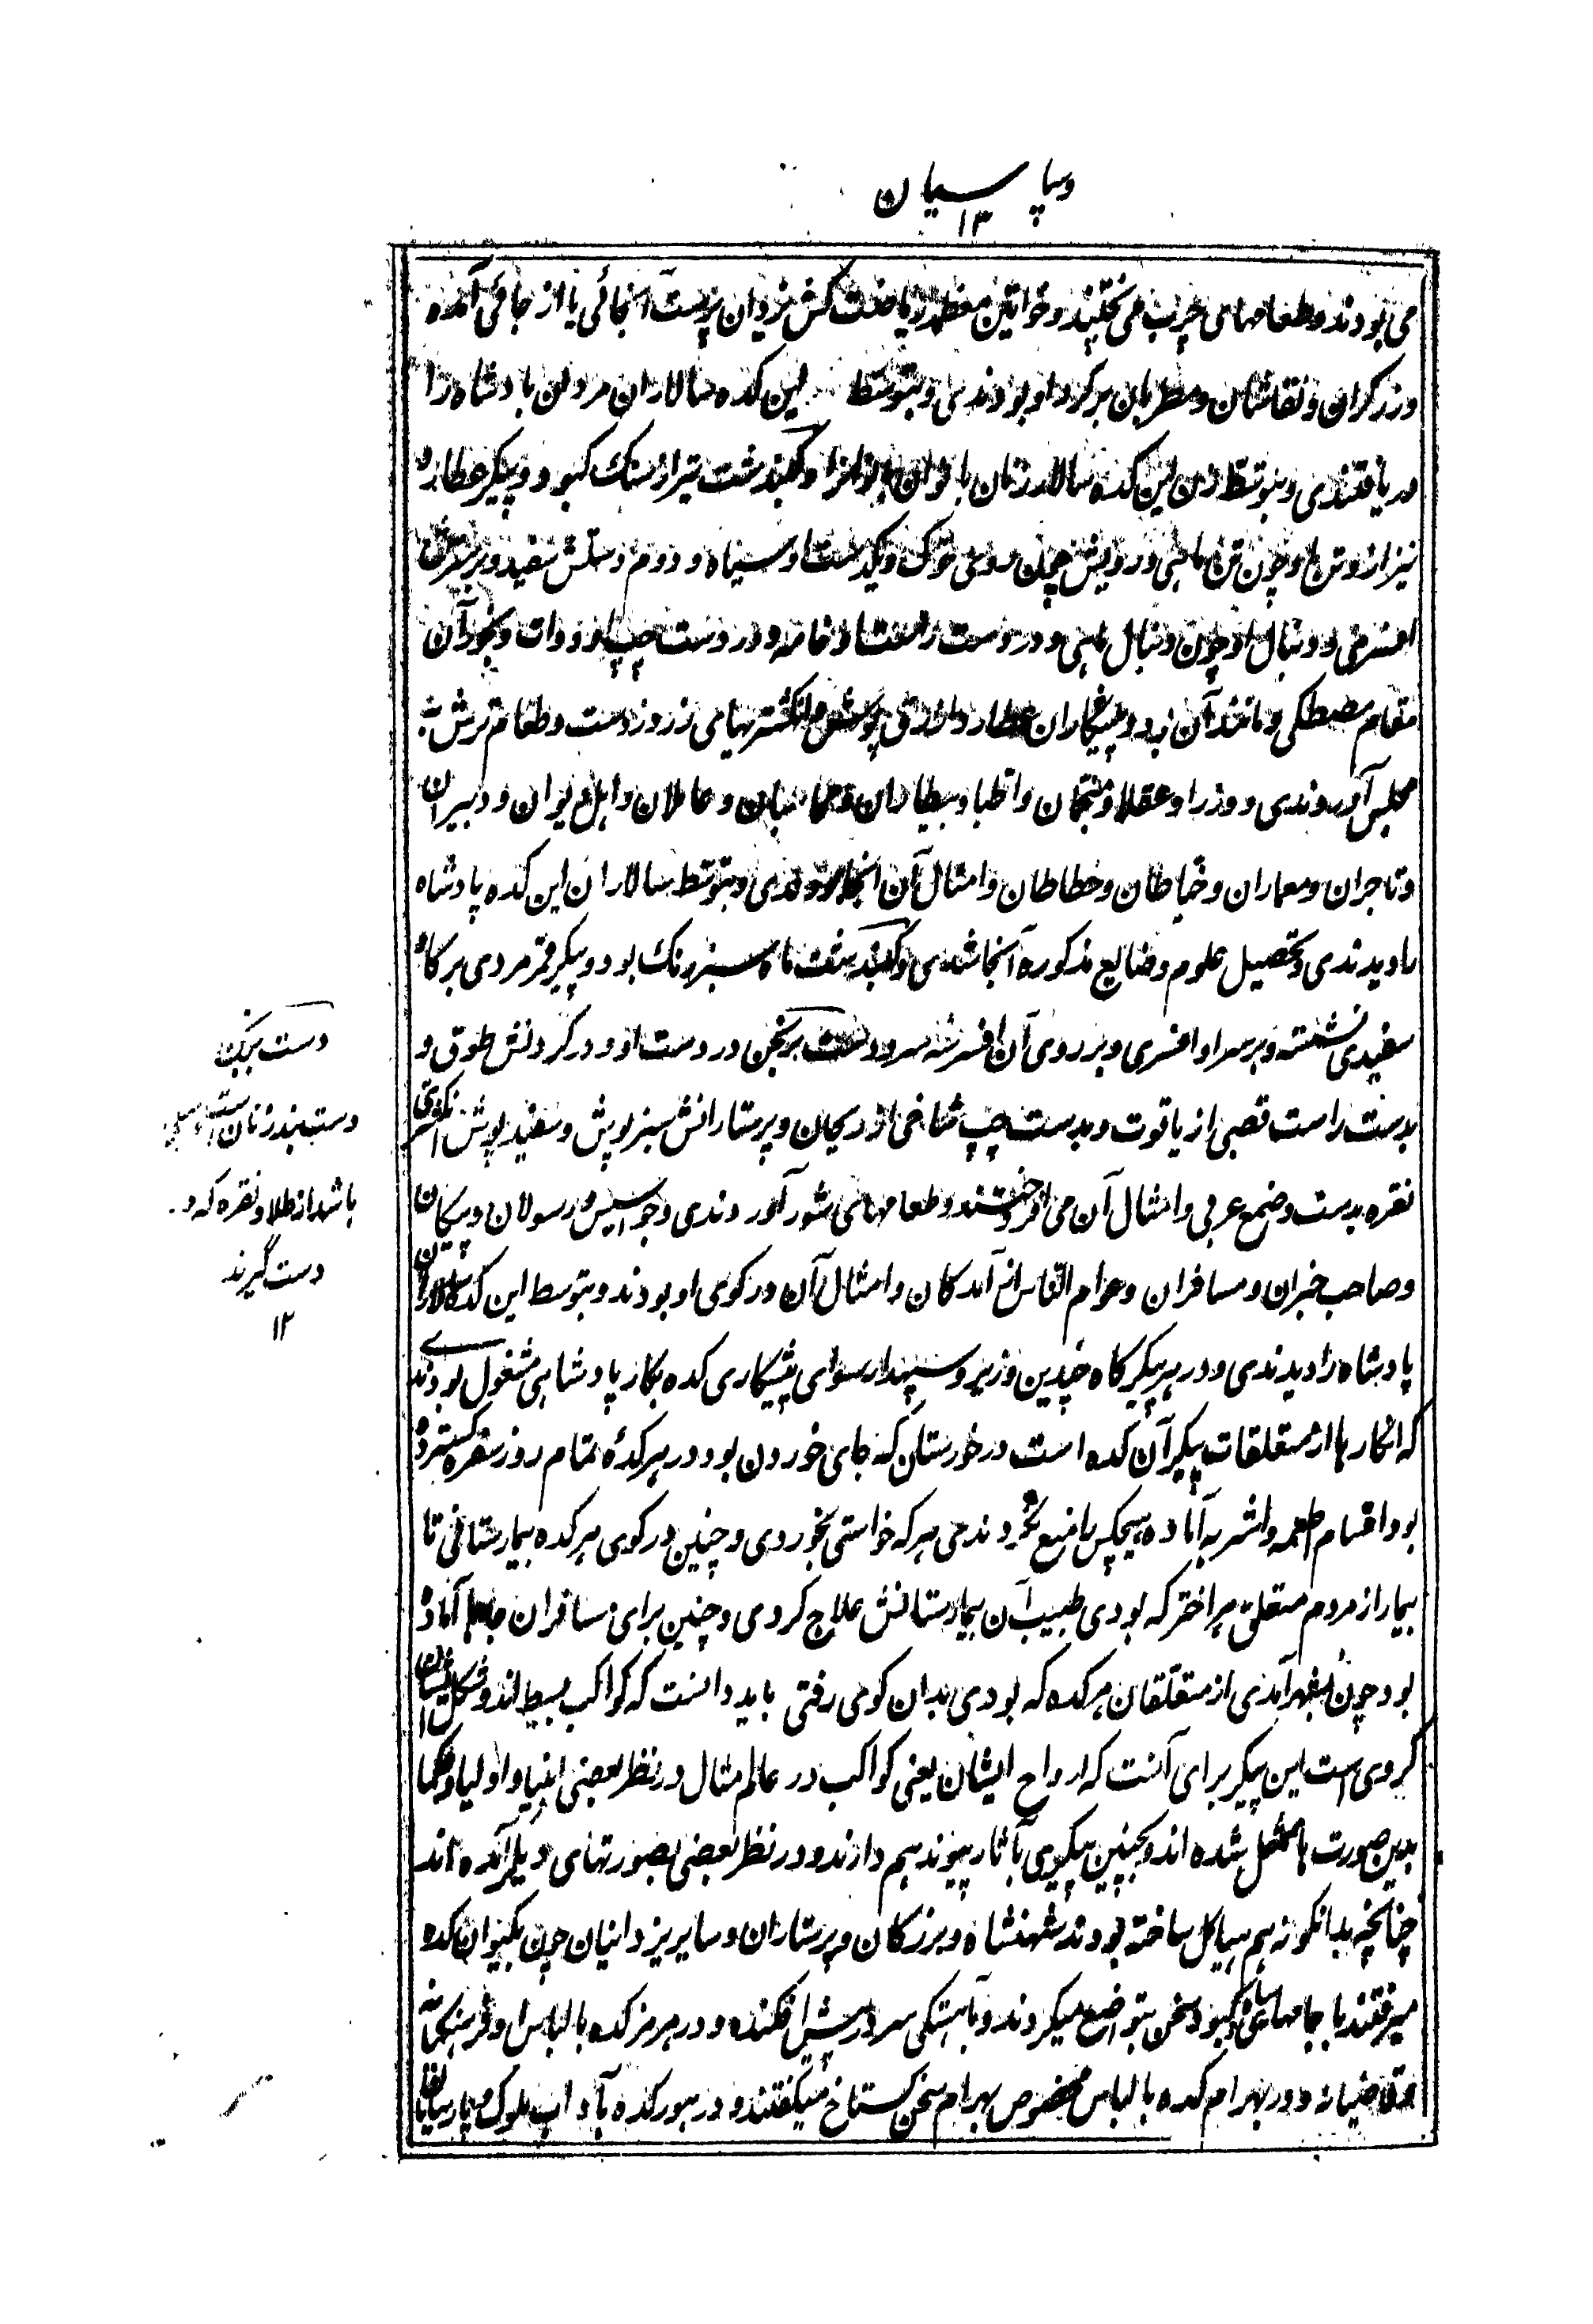 وسپاسیان
۱۳
می بودند و طعامهای چرب می پختند و خواتین معظمه ریاضت کش یزدان پرست آنجائی یا از جائی آمده
و زرگران و نقاشان و مطربان بر گرد او بودندی و بتوسط این کده سالاران مردان بادشاه را
دریافتندی و بتوسط زن این کده سالار زنان بانوان بانو را و گنبد شت تیر از سنگ کبود و پیکر عطارد
نیز از و تن او چون تن ماهی و رویش چون روی خوک و یکدست او سیاه و دوم دستش سفید و بر سرش
افسری و دنبال او چون دنبال ماهی و در دست راست او خامه و در دست چپ او دوات و بخور آن
مقام مصطکی و مانند آن بود و پیشکاران عطارد ازرق پوش و انگشتریهای زر در دست و طعام ترش به
مجلس آوردندی و وزرا و عقلا و منجمان و اطبا و بیطاران و محاسبان و عاملان و اهل دیوان و دبیران
و تاجران و معماران و خیاطان و خطاطان و امثال آن آنجا بودندی و بتوسط سالاران این کده پادشاه
را دیدندی و تحصیل علوم و صنایع مذکوره آنجا شدی و گنبد شت ماه سبز رنگ بود و پیکر قمر مردی بر گاو
سفیدی نشسته و بر سر او افسری و بر روی آن افسر سه سرو و دست برنجن در دست او و در گردنش طوق و
بدست راست قصبی از یاقوت و بدست چپ شاخی از ریحان و پرستارانش سبز پوش و سفید پوش انگشتری
نقره بدست و ضمع عربی و امثال آن می افروختند و طعامهای شور آوردندی و جواسیس و رسولان و پیکان
و صاحب خبران و مسافران و عوام الناس از آمدگان و امثال آن در کوی او بودند و بتوسط این کده سالاران
پادشاه را دیدندی و در هر پیکر گاه چندین وزیر و سپهدار سوای پیشکاری کده بکار پادشاهی مشغول بودندی
که آنکارها از متعلقات پیکر آن کده است در خورستان که جای خوردن بود در هر کدۀ تمام روز سفره گسترده
بود اقسام اطعمه و اشربه آماده هیچکس را منع نکردندی هر که خواستی بخوردی و چنین در کوی هر کده بیمارستانی تا
بیمار از مردم متعلق هر اختر که بودی طبیب آن بیمارستانش علاج کردی و چنین برای مسافران جاها آماده
بود چون بشهر آمدی از متعلقان هر کده که بودی بدان کو می رفتی باید دانست که کواکب بسیط اند و شکل ایشان
کروی است این پیکر برای آنست که ارواح ایشان یعنی کواکب در عالم مثال در نظر بعضی انبیا و اولیا و حکما
بدین صورت ها متمثل شده اند و بچنین پیکری بآثار پیوند هم دارند و در نظر بعضی بصورتهای دیگر آمده اند
چنانچه بدانگونه هم هیاکل ساخته بودند شهنشاه و بزرگان و پرستاران و سایر یزدانیان چون بکیوان کده
میرفتند با جامهای کبود سخن بتواضع میکردند و بآهستگی سر در پیش افکنده و در هرمزکده با لباس او فرهنگیانه
و قاضیانه و در بهرام کده با لباس مخصوص بهرام سخن گستاخ میگفتند و در هورکده بآداب ملوک و پارسایان
دست برنجن
دست بند زنان است
باشد از طلا و نقره که در
دست گیرند
۱۲